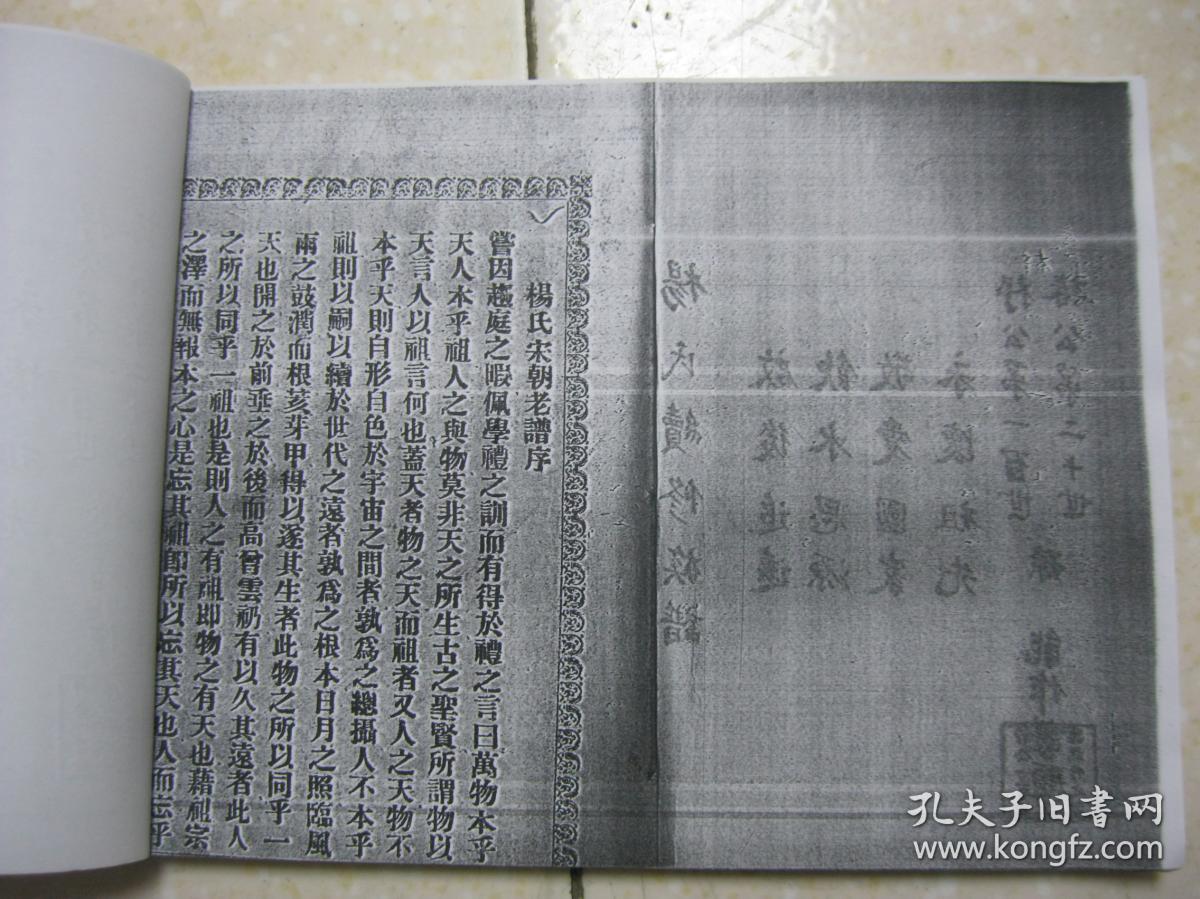 公第二十世
公第一百世
能作
永懷祖先
敬愛國家
飲水思源
啟後追遠
楊氏續修族譜
楊氏宋朝老譜序
嘗因趨庭之暇佩學禮之訓而有得於禮之言曰萬物本乎
天人本乎祖人之與物莫非天之所生古之聖賢所謂物以
天言人以祖言何也蓋天者物之天而祖者又人之天物不
本乎天則自形自色於宇宙之間者孰爲之總攝人不本乎
祖則以嗣以續於世代之遠者孰爲之根本日月之照臨風
雨之鼓潤而根荄芽甲得以遂其生者此物之所以同乎一
天也開之於前垂之於後而高曾雲礽有以久其遠者此人
之所以同乎一祖也是則人之有祖即物之有天也藉祖宗
之澤而無報本之心是忘其祖即所以忘其天也人而忘乎
孔夫子旧书网
www.kongfz.com